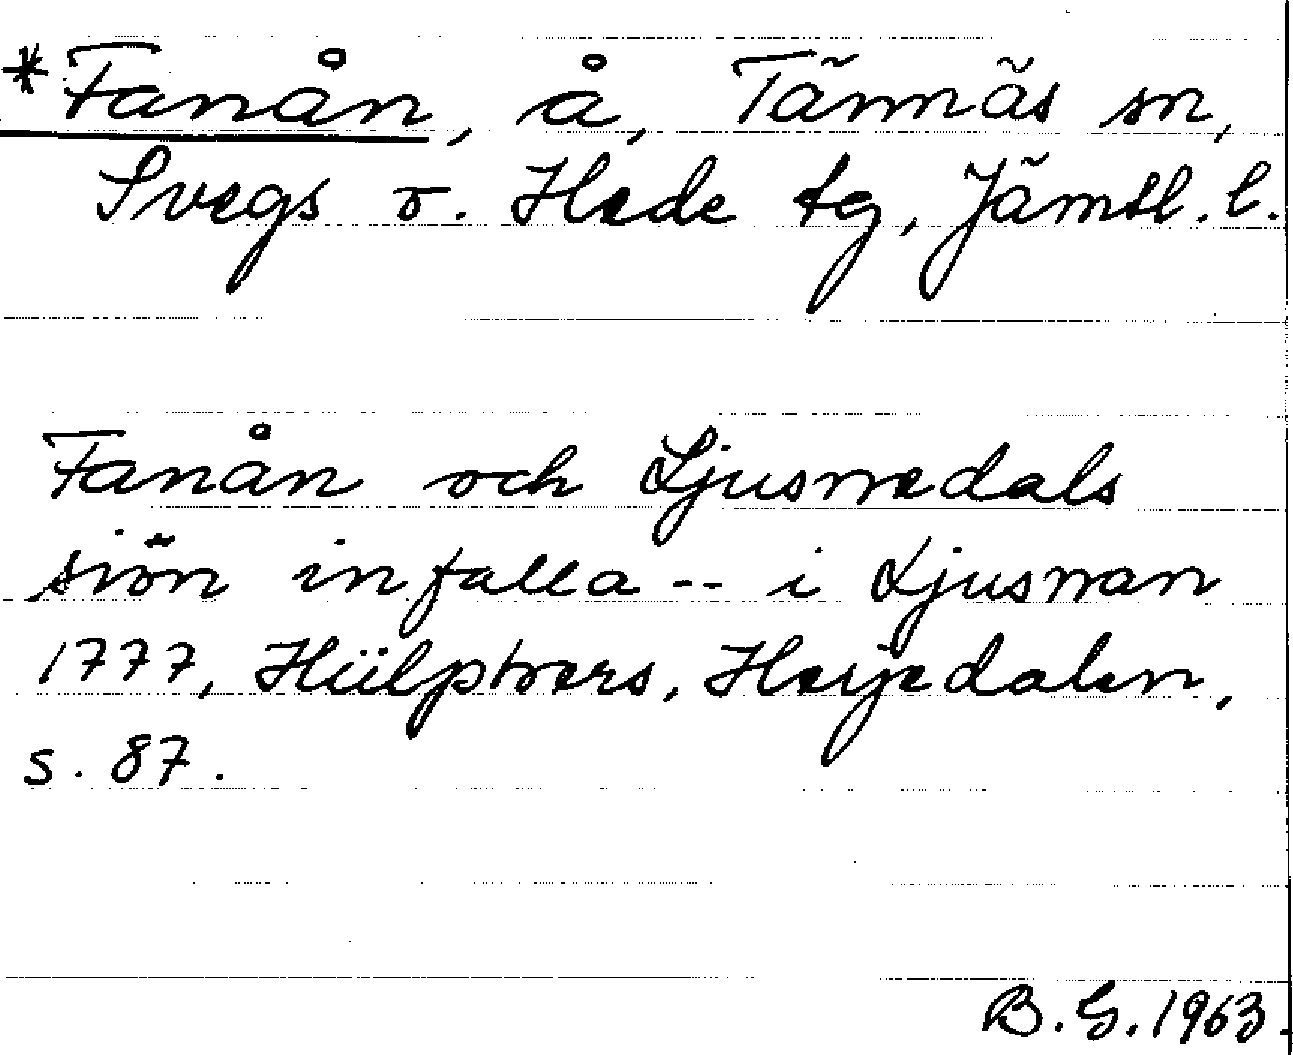 *Fanån, å, Tännäs sn,
Svegs o. Hede tg, Jämtl. l.
Fanån och Ljusnedals
siön infalla -- i Ljusnan
1777, Hülphers, Herjedalen,
s. 87.
B. G. 1963.